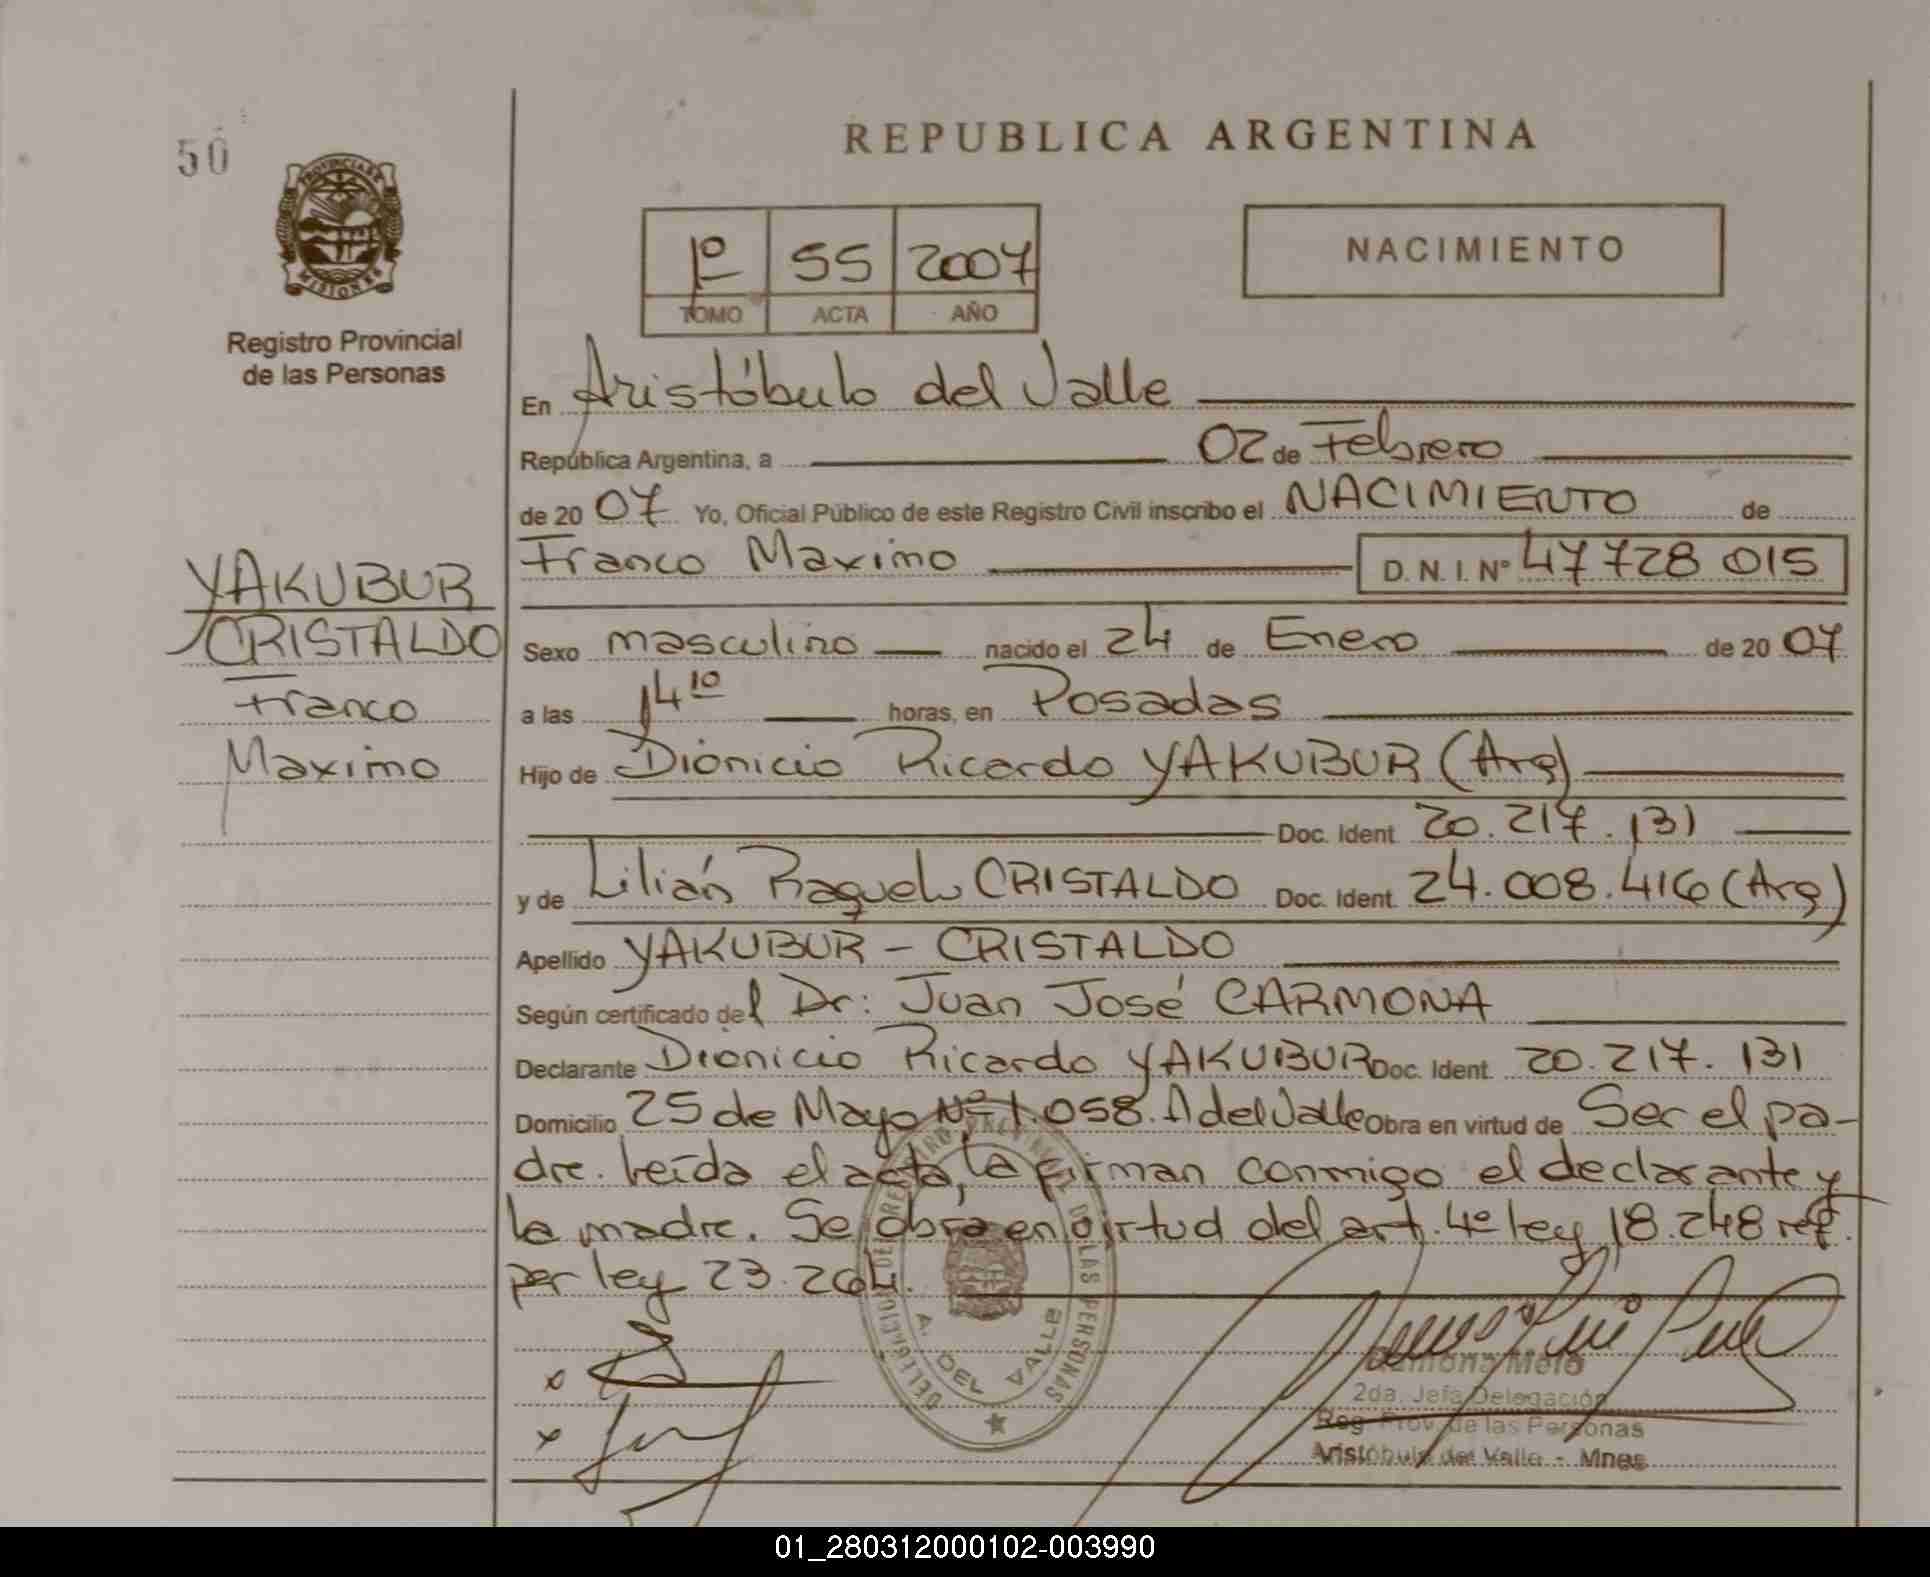 50
PROVINCIA DE
MISIONES
Registro Provincial
de las Personas
REPUBLICA ARGENTINA
1º 55 2007
TOMO ACTA AÑO
NACIMIENTO
En Aristóbulo del Valle
República Argentina, a 02 de Febrero
de 20 07 Yo, Oficial Público de este Registro Civil inscribo el NACIMIENTO de
Franco Maximo D. N. I. Nº 47728015
YAKUBUR
CRISTALDO
Franco
Maximo
Sexo masculino nacido el 24 de Enero de 20 07
a las 14 10 horas, en Posadas
Hijo de Dionicio Ricardo YAKUBUR (Arg)
Doc. Ident. 20.217.131
y de Lilián Raquel CRISTALDO Doc. Ident. 24.008.416 (Arg)
Apellido YAKUBUR - CRISTALDO
Según certificado del Dr: Juan José CARMONA
Declarante Dionicio Ricardo YAKUBUR Doc. Ident. 20.217.131
Domicilio 25 de Mayo Nº 1.058. A del Valle Obra en virtud de Ser el pa-
dre. Leída el acta, la firman conmigo el declarante y
la madre. Se obra en virtud del art. 4º ley 18.248 ref.
per ley 23.264.
DELEGACION DEL REGISTRO PROVINCIAL DE LAS PERSONAS
A. DEL VALLE
Ramona Melo
2da. Jefa Delegación
Reg. Prov. de las Personas
Aristóbulo del Valle - Mnes
01_280312000102-003990